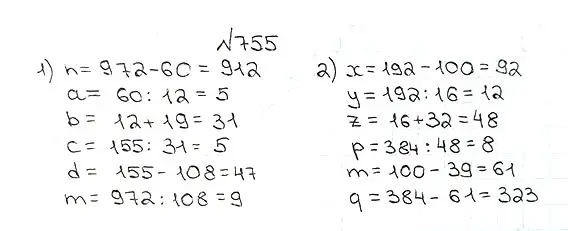 №755
1) n = 972 - 60 = 912
a = 60 : 12 = 5
b = 12 + 19 = 31
c = 155 : 31 = 5
d = 155 - 108 = 47
m = 972 : 108 = 9
2) x = 192 - 100 = 92
y = 192 : 16 = 12
z = 16 + 32 = 48
p = 384 : 48 = 8
m = 100 - 39 = 61
q = 384 - 61 = 323